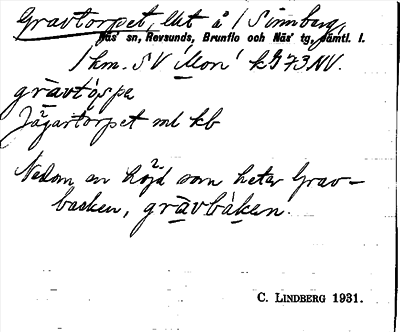 Gravtorpet, lht å 1 Sinnberg,
Näs' sn, Revsunds, Brunflo och Näs' tg, Jämtl. l.
1 km. SV Mon' kJ 73 NV.
grävtórpa
Jägartorpet ml kb
Nedom en höjd som heter Grav-
backen, gravbáken.
C. LINDBERG 1931.